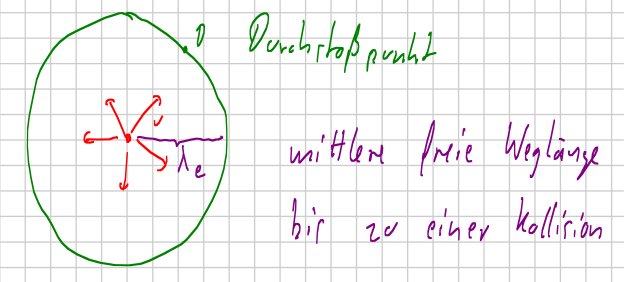 D Durchstoßpunkt
v
λe
mittlere freie Weglänge
bis zu einer Kollision